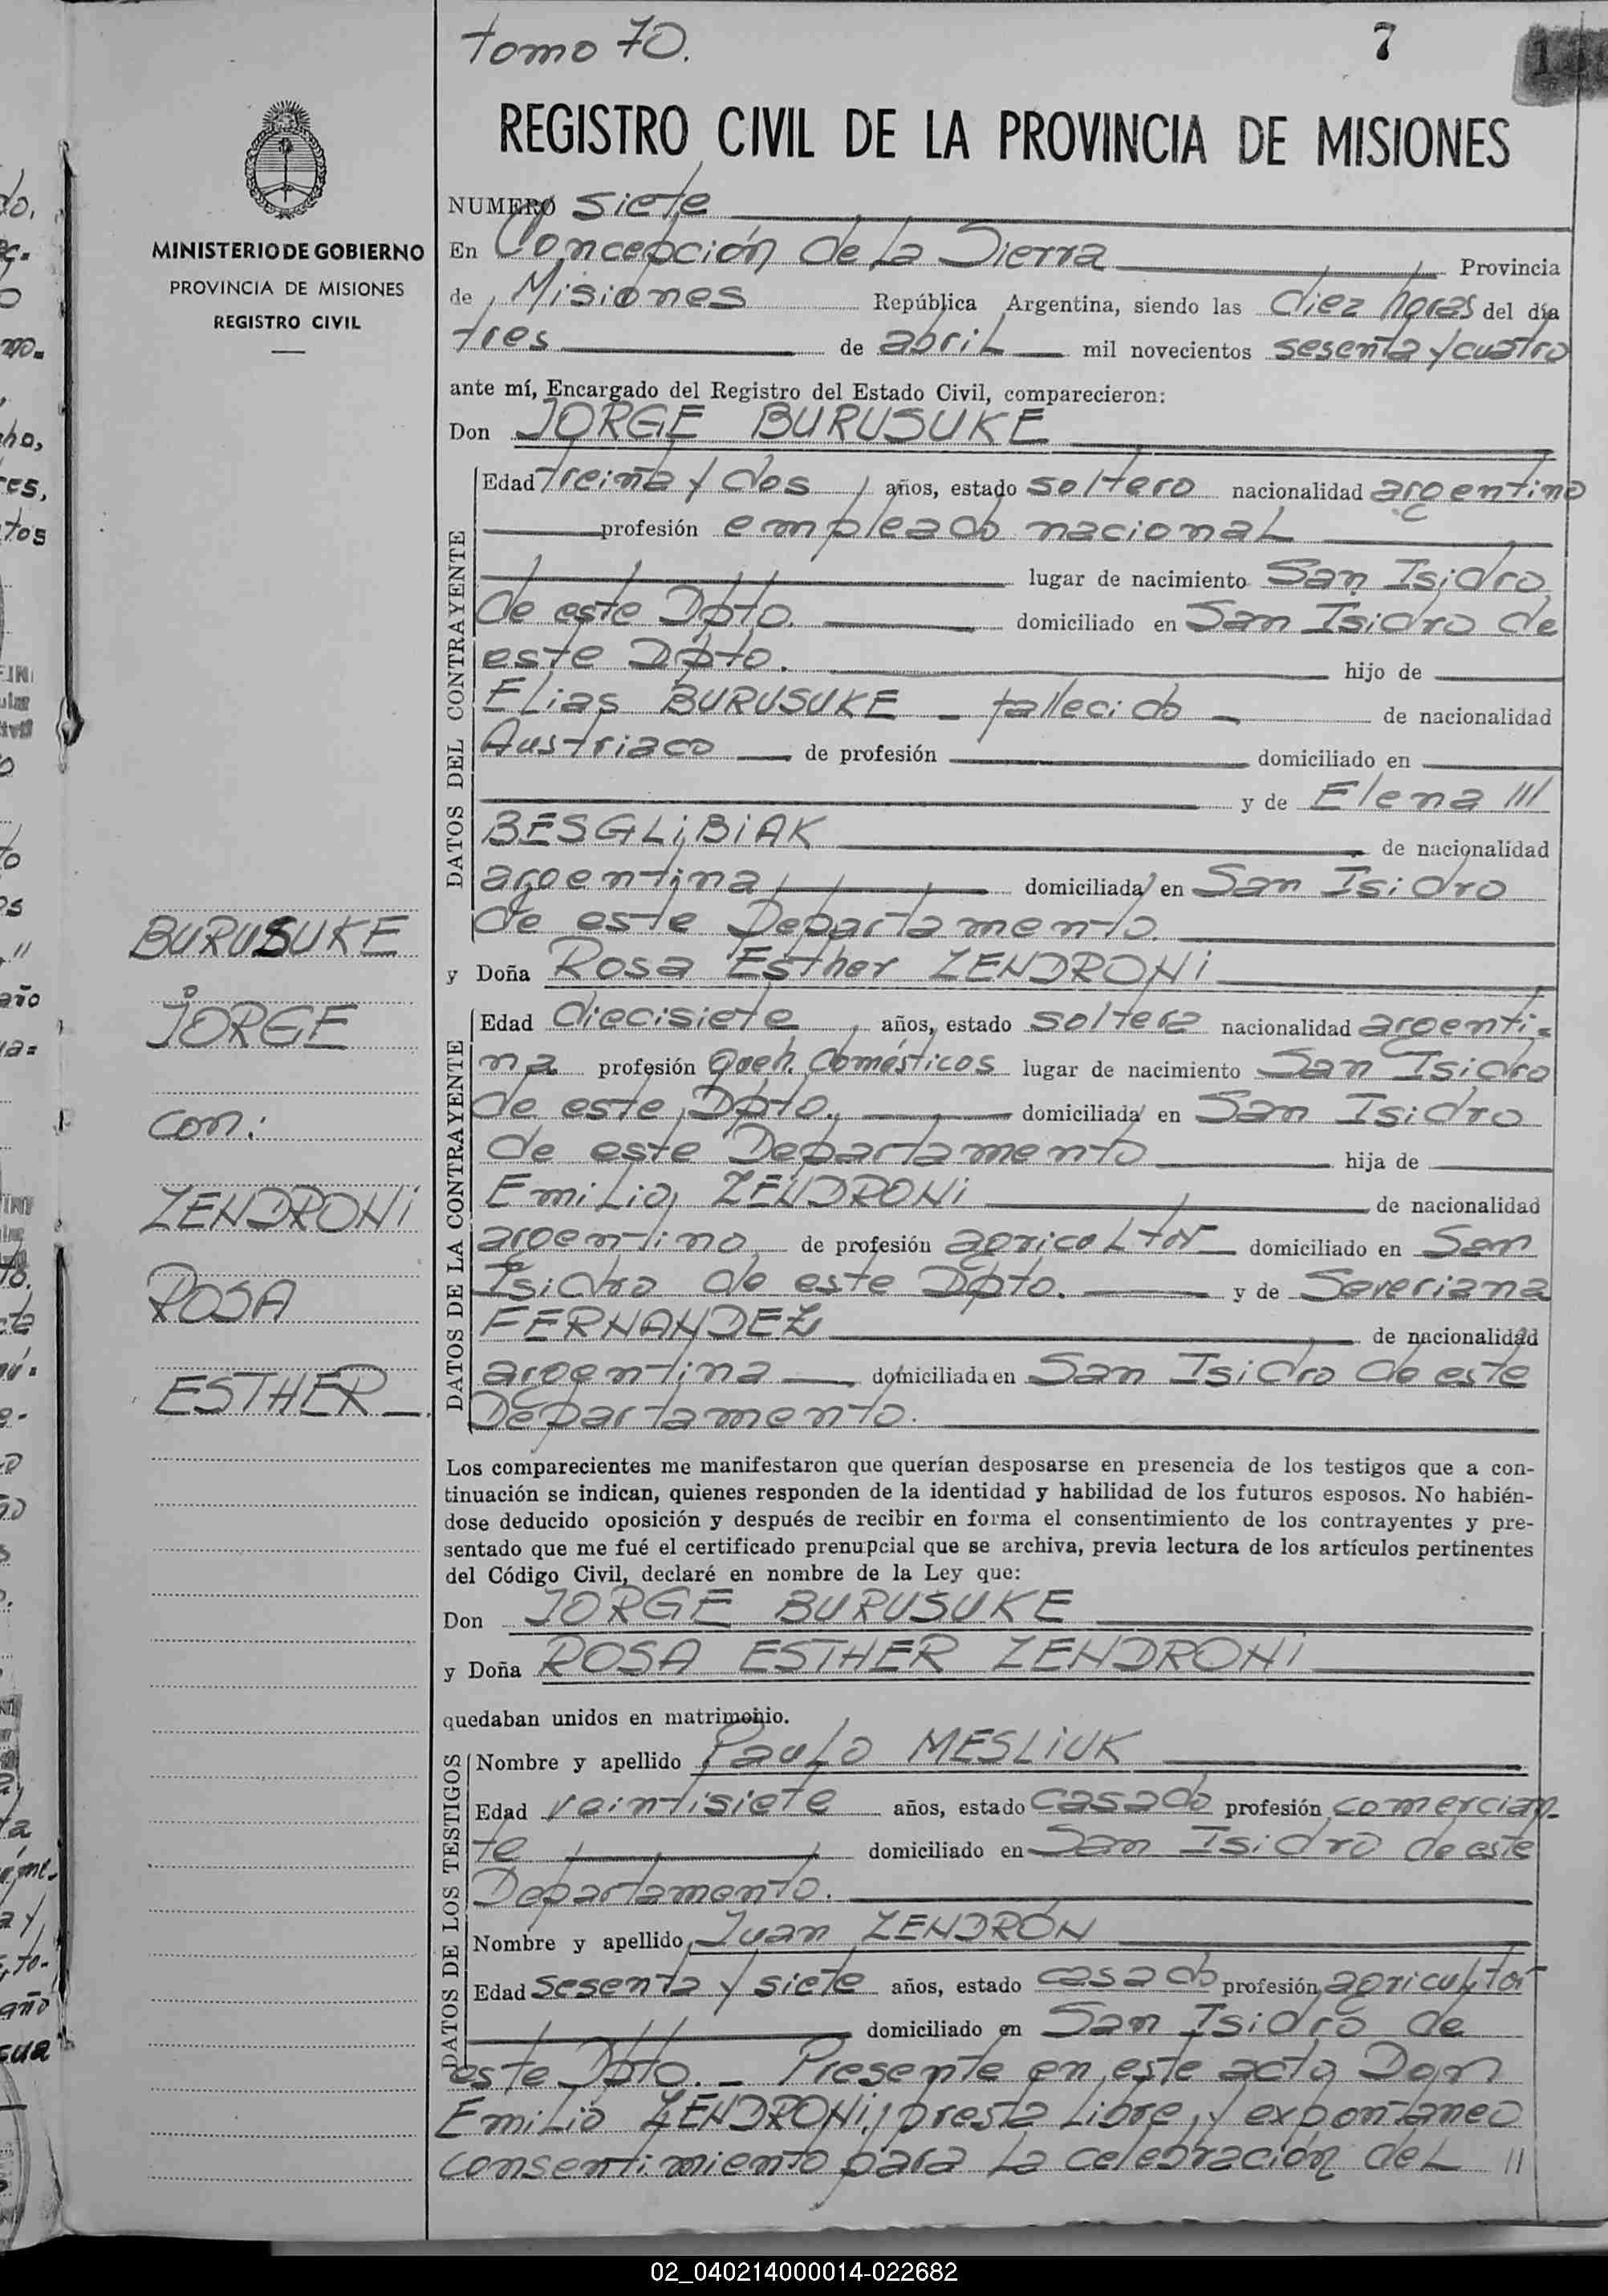 tomo 70.
7
REGISTRO CIVIL DE LA PROVINCIA DE MISIONES
MINISTERIO DE GOBIERNO
PROVINCIA DE MISIONES
REGISTRO CIVIL
NUMERO siete
En Concepción de la Sierra Provincia
de Misiones República Argentina, siendo las diez horas del día
tres de abril mil novecientos sesenta y cuatro
ante mí, Encargado del Registro del Estado Civil, comparecieron:
Don JORGE BURUSUKE
DATOS DEL CONTRAYENTE
Edad treinta y dos años, estado soltero nacionalidad argentino
profesión empleado nacional
lugar de nacimiento San Isidro,
de este Dpto. domiciliado en San Isidro de
este Dpto. hijo de
Elias BURUSUKE - fallecido - de nacionalidad
Austriaco de profesión domiciliado en
y de Elena ///
BESGLiBiAK de nacionalidad
argentina, domiciliada en San Isidro
de este Departamento.
y Doña Rosa Esther ZENDRONi
DATOS DE LA CONTRAYENTE
Edad diecisiete años, estado soltera nacionalidad argenti=
na profesión Qeh. Domésticos lugar de nacimiento San Isidro
de este Dpto. domiciliada en San Isidro
de este Departamento hija de
Emilio ZENDRONi de nacionalidad
argentino, de profesión agricoltor domiciliado en San
Isidro de este Dpto. y de Severiana
FERNANDEZ de nacionalidad
argentina domiciliada en San Isidro de este
Departamento.
BURUSUKE
JORGE
con:
ZENDRONi
ROSA
ESTHER
Los comparecientes me manifestaron que querían desposarse en presencia de los testigos que a con-
tinuación se indican, quienes responden de la identidad y habilidad de los futuros esposos. No habién-
dose deducido oposición y después de recibir en forma el consentimiento de los contrayentes y pre-
sentado que me fué el certificado prenupcial que se archiva, previa lectura de los artículos pertinentes
del Código Civil, declaré en nombre de la Ley que:
Don JORGE BURUSUKE
y Doña ROSA ESTHER ZENDRONi
quedaban unidos en matrimonio.
DATOS DE LOS TESTIGOS
Nombre y apellido Paulo MESLiUK
Edad veintisiete años, estado casado profesión comercian-
te domiciliado en San Isidro de este
Departamento.
Nombre y apellido Juan ZENDRÓN
Edad sesenta y siete años, estado casado profesión agricultor
domiciliado en San Isidro de
este Dpto. - Presente en este acto Don
Emilio ZENDRONi, presta libre y expontáneo
consentimiento para la celebración del //
02_040214000014-022682